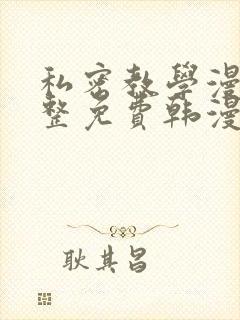 私密教學漫
整免費韩漫
耿其昌